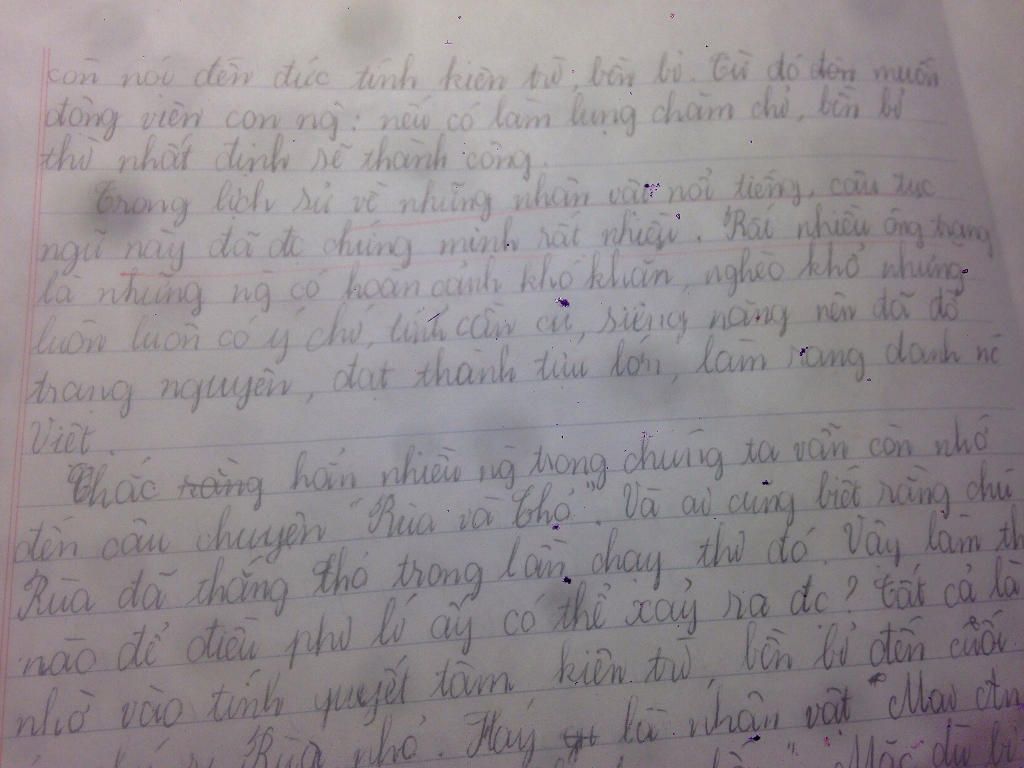 còn nói đến đức tính kiên trì, bền bỉ. Từ đó đến muốn
động viên con ng: nếu có làm lụng chăm chỉ, bền bỉ
thì nhất định sẽ thành công.
Trong lịch sử về những nhân vật nổi tiếng, câu tục
ngữ này đã đc chứng minh rất nhiều. Rất nhiều ông trạng
là những ng có hoàn cảnh khó khăn, nghèo khổ nhưng
luôn luôn có ý chí, tính cần cù, siêng năng nên đã đỗ
trạng nguyên, đạt thành tựu lớn, làm rạng danh
Việt.
Chắc rằng hẳn nhiều ng trong chúng ta vẫn còn nhớ
đến câu chuyện "Rùa và Thỏ". Và ai cũng biết rằng chú
Rùa đã thắng thỏ trong lần chạy thi đó. Vậy làm
nào để điều phi lí ấy có thể xảy ra đc? Tất cả là
nhờ vào tính quyết tâm kiên trì, bền bỉ đến cuối
Rùa nhỏ. Hay là nhân vật "Mai An
Mặc dù bị